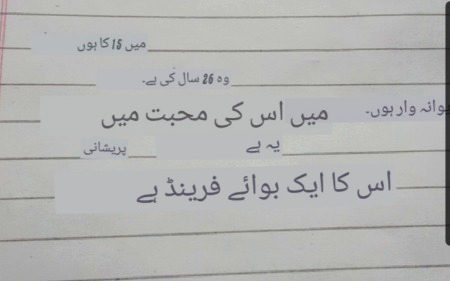 میں 15 کا ہوں
وہ 26 سال کی ہے۔
میں اس کی محبت میں
دیوانہ وار ہوں۔
یہ ہے
پریشانی
اس کا ایک بوائے فرینڈ ہے